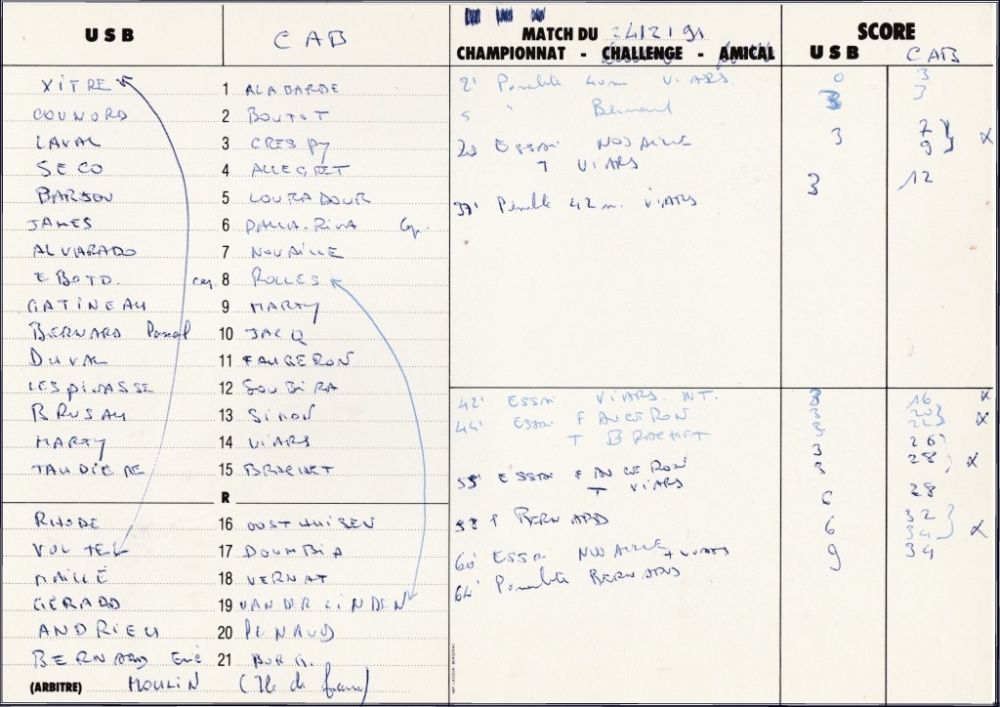 USB CAB
XITRE 1 ALADARDE
COUNORD 2 BOUTOT
LAVAL 3 CRESPY
SECO 4 ALLEGRET
BARSON 5 LOURADOUR
JAMES 6 DALLA-RIVA Cap.
ALVARADO 7 NOUAILLE
EBOTO. cap. 8 ROLLES
GATINEAU 9 MARTY
BERNARD Pascal 10 JACQ
DUVAL 11 FAUGERON
LESPINASSE 12 SOUBIRA
BRUSAU 13 SIMON
MARTY 14 VIARS
TAUDIERE 15 BRACHET
R
RHODE 16 OOSTHUISEN
VOLTEL 17 DOUMBIA
MAILLÉ 18 VERNAT
GÉRARD 19 VAN DER LINDEN
ANDRIEU 20 PENAUD
BERNARD Eric 21
(ARBITRE) MOULIN (Ile de france)
MATCH DU 24/2/91
CHAMPIONNAT - CHALLENGE - AMICAL
SCORE
USB CAB
2' Penalité 40m VIARS. 0 3
5 " Bernard 3 3
20 ESSAI NOUAILLE 3 7
T VIARS 9 } X
37' Penalité 42 m. VIARS 3 12
42' ESSAI VIARS. NT. 3 16 X
44' ESSAI FAUGERON 3 20 } X
T BRACHET 3 22
55' ESSAI FAUGERON 3 26
T VIARS 3 28 ) X
58 P BERNARD 6 28
60' ESSAI NOUAILLE + VIARS 6 32 34 } X
64' Penalité BERNARD 9 34